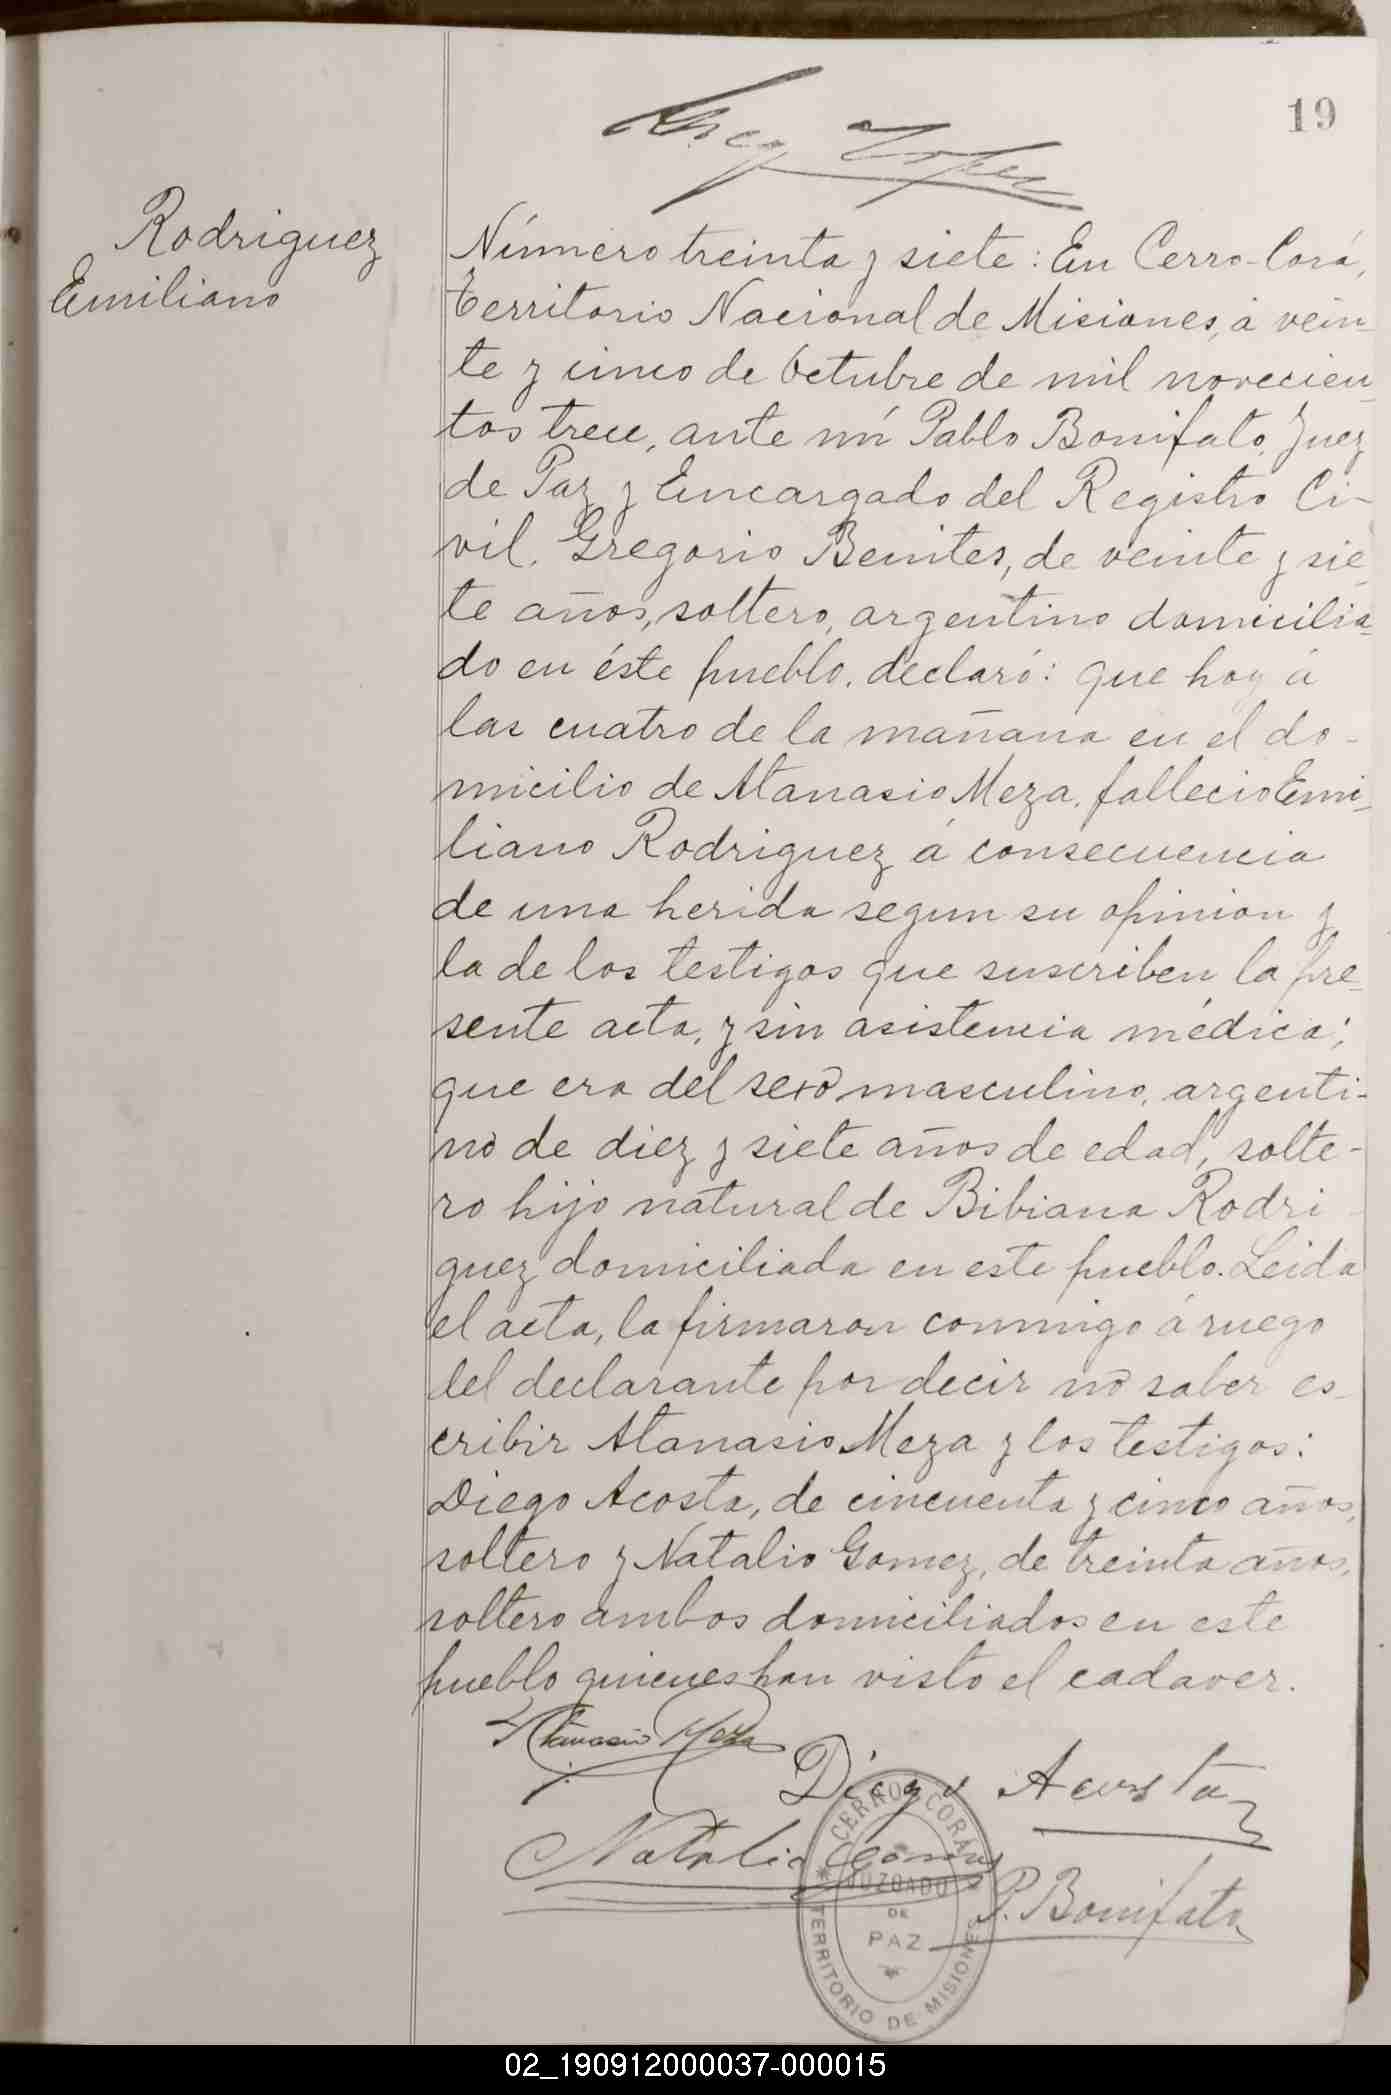 19
Rodriguez
Emiliano
Número treinta y siete: En Cerro-Corá,
territorio Nacional de Misiones, á vein-
te y cinco de Octubre de mil novecien-
tos trece, ante mí Pablo Bonifato, Juez
de Paz y Encargado del Registro Ci-
vil. Gregorio Benites, de veinte y sie-
te años, soltero, argentino domicilia-
do en éste pueblo, declaró: que hoy á
las cuatro de la mañana en el do-
micilio de Atanasio Meza, fallecio Emi-
liano Rodriguez á consecuencia
de una herida segun su opinion y
la de los testigos que suscriben la pre-
sente acta, y sin asistencia médica;
que era del sexo masculino, argenti-
no de diez y siete años de edad, solte-
ro hijo natural de Bibiana Rodri-
guez domiciliada en este pueblo. Leida
el acta, la firmaron conmigo á ruego
del declarante por decir no saber es-
cribir Atanasio Meza y los testigos:
Diego Acosta, de cincuenta y cinco años,
soltero y Natalio Gomez, de treinta años,
soltero ambos domiciliados en este
pueblo quienes han visto el cadaver.
Atanasio Meza
Diego Acosta
Natalio Gomez
P. Bonifato
CERRO CORÁ
JUZGADO
DE
PAZ
TERRITORIO DE MISIONES
02_190912000037-000015